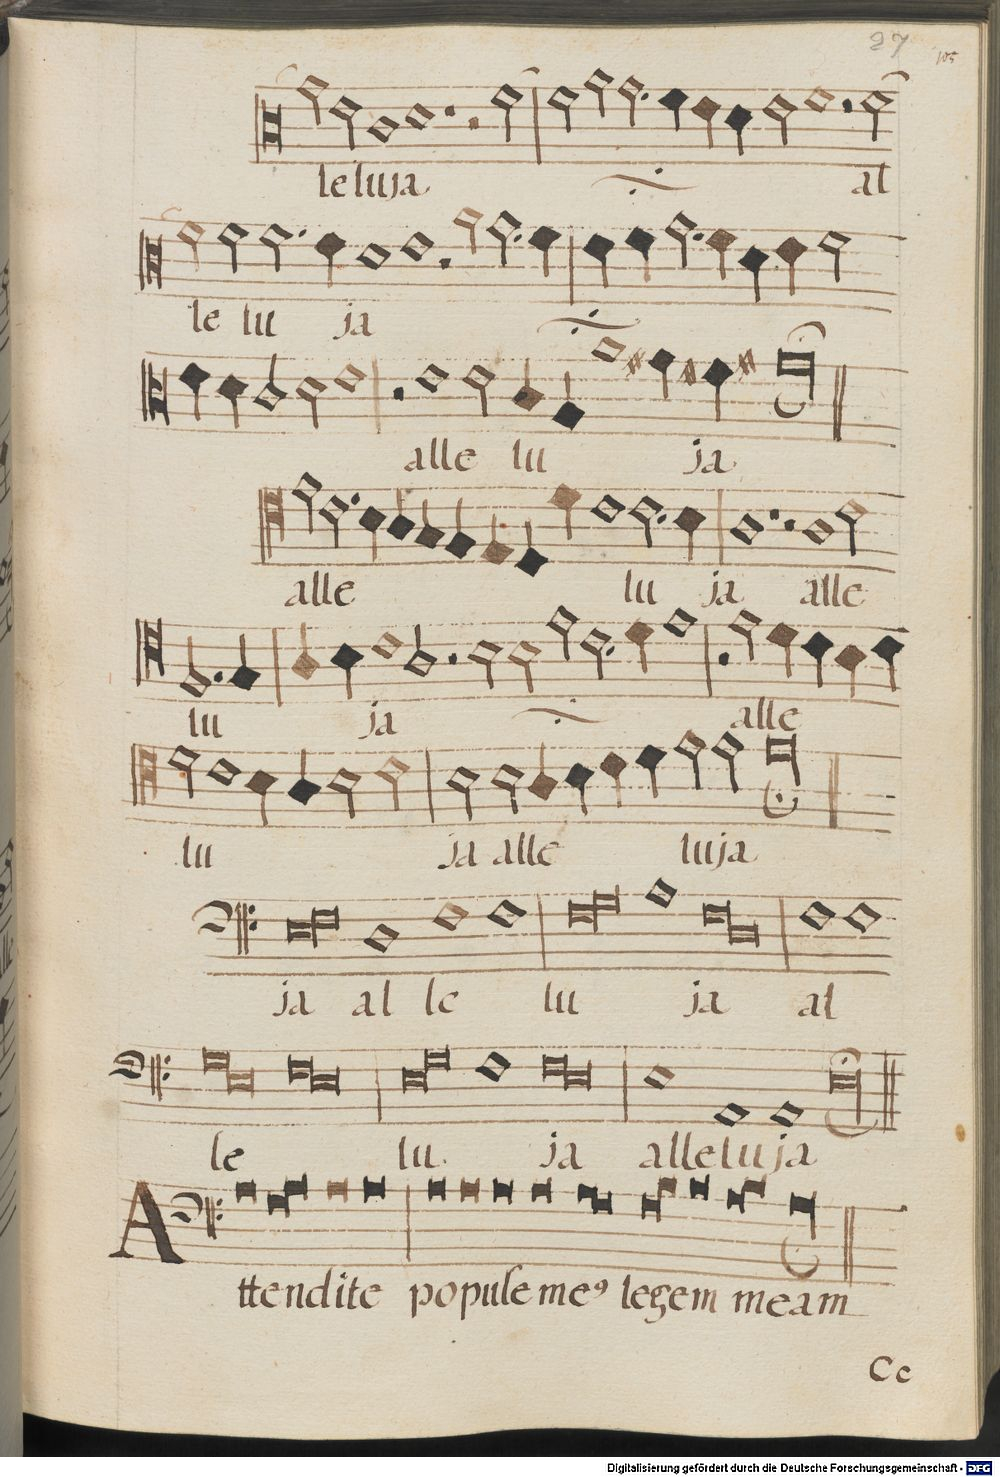 27
105
leluja al
le lu ja
alle lu ja
alle lu ja alle
lu ja alle
lu ja alle luja
ja al le lu ja al
le lu ja alleluja
Attendite popule me9 legem meam
Cc
Digitalisierung gefördert durch die Deutsche Forschungsgemeinschaft - DFG